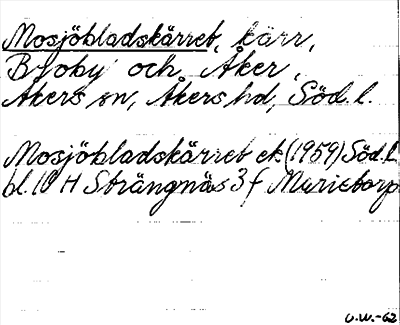 Mosjöbladskärret, kärr,
Byoby och Åker,
Åkers sn, Åkers hd, Söd.l.
Mosjöbladskärret ek (1959) Söd.l.
bl. 10 H Strängnäs 3 f Marietorp
U.W.-62